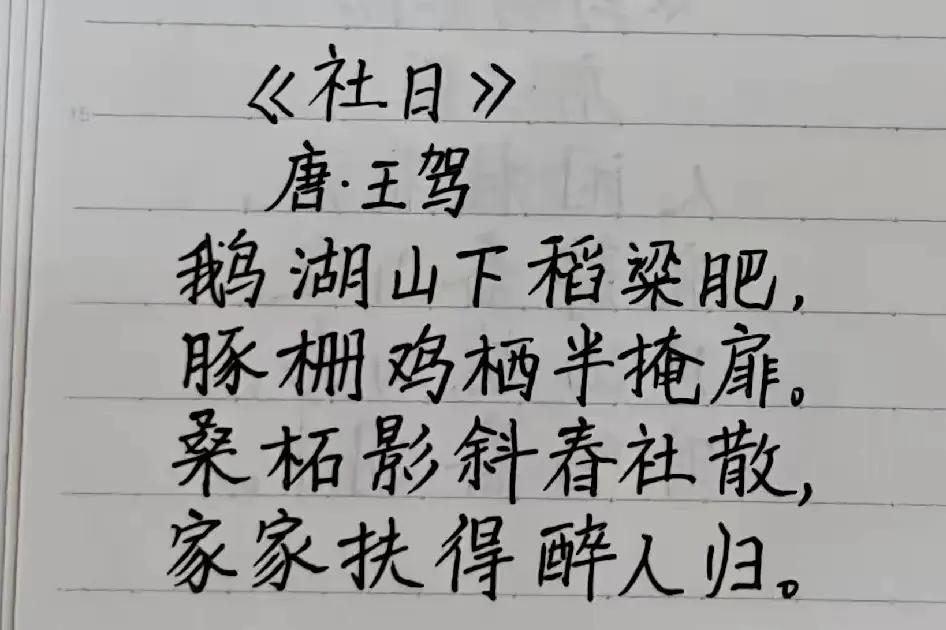 《社日》
唐·王驾
鹅湖山下稻粱肥,
豚栅鸡栖半掩扉。
桑柘影斜春社散,
家家扶得醉人归。